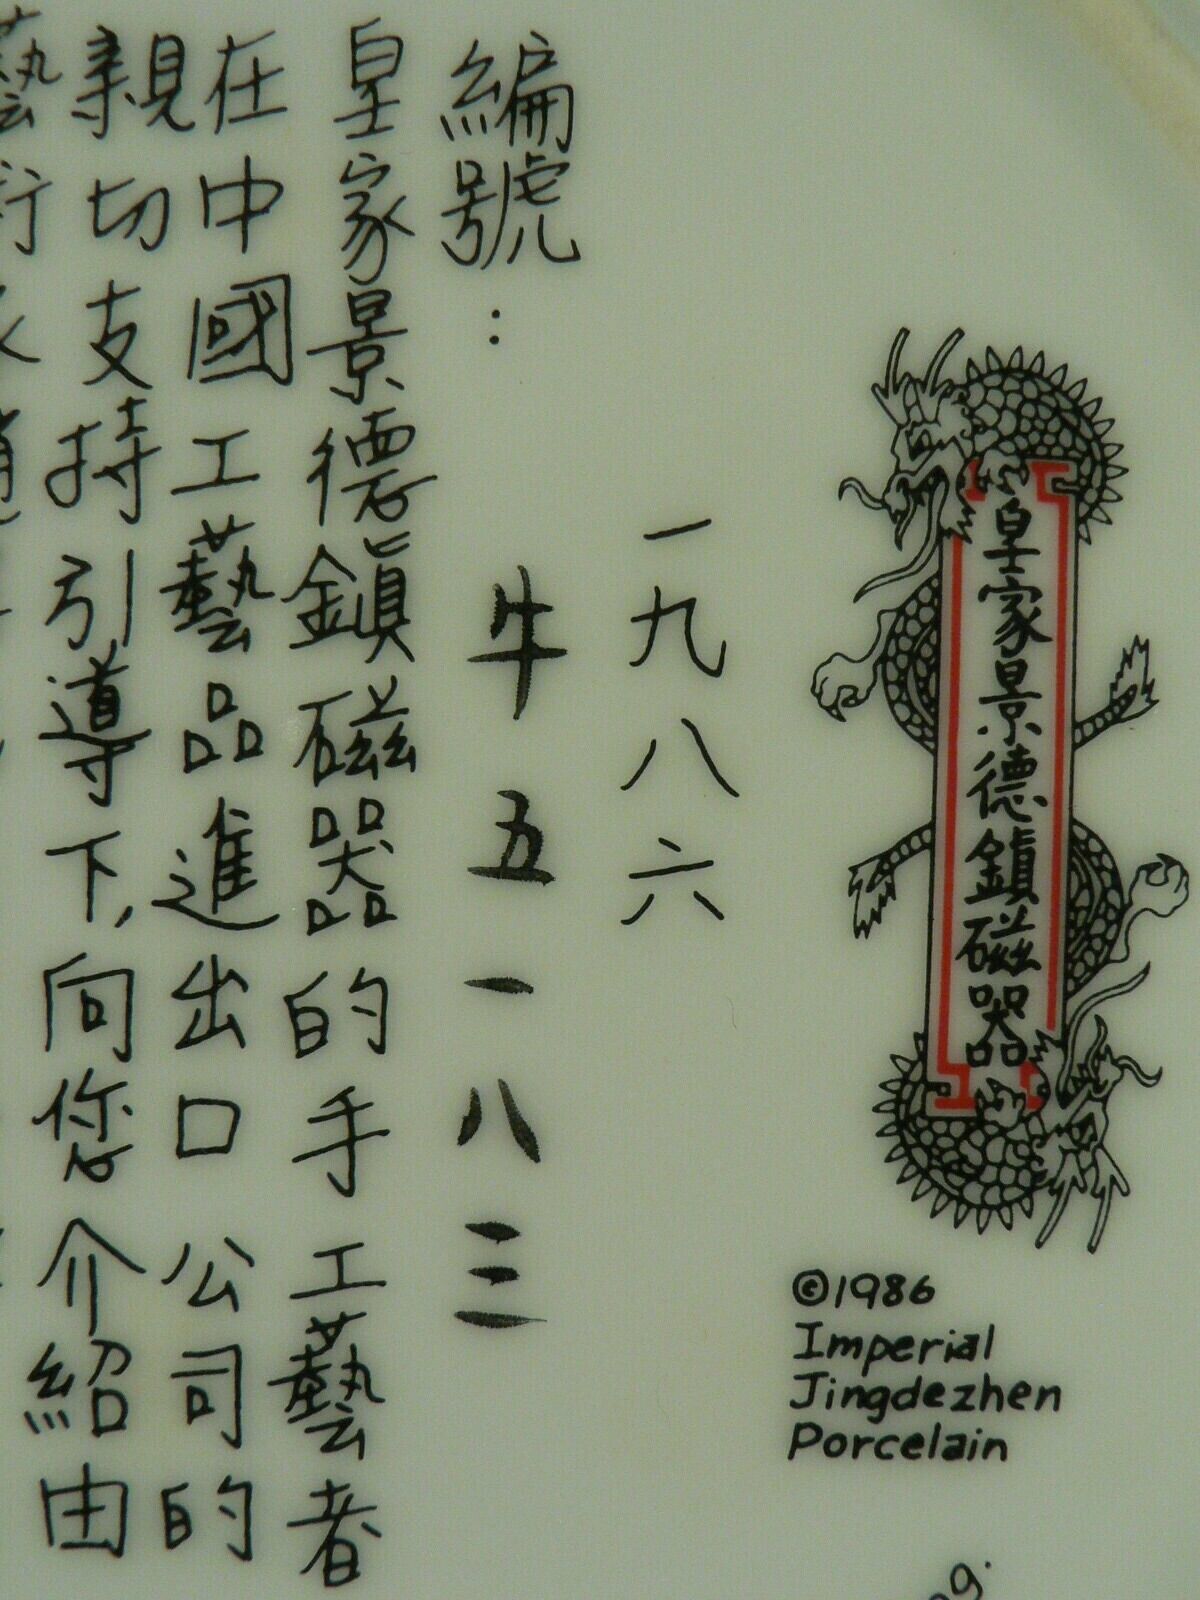 皇家景德鎮磁器
©1986
Imperial
Jingdezhen
Porcelain
一九八六
編號：牛五一八三
皇家景德鎮磁器的手工藝者
在中國工藝品進出口公司的
親切支持引導下，向您介紹由
藝術